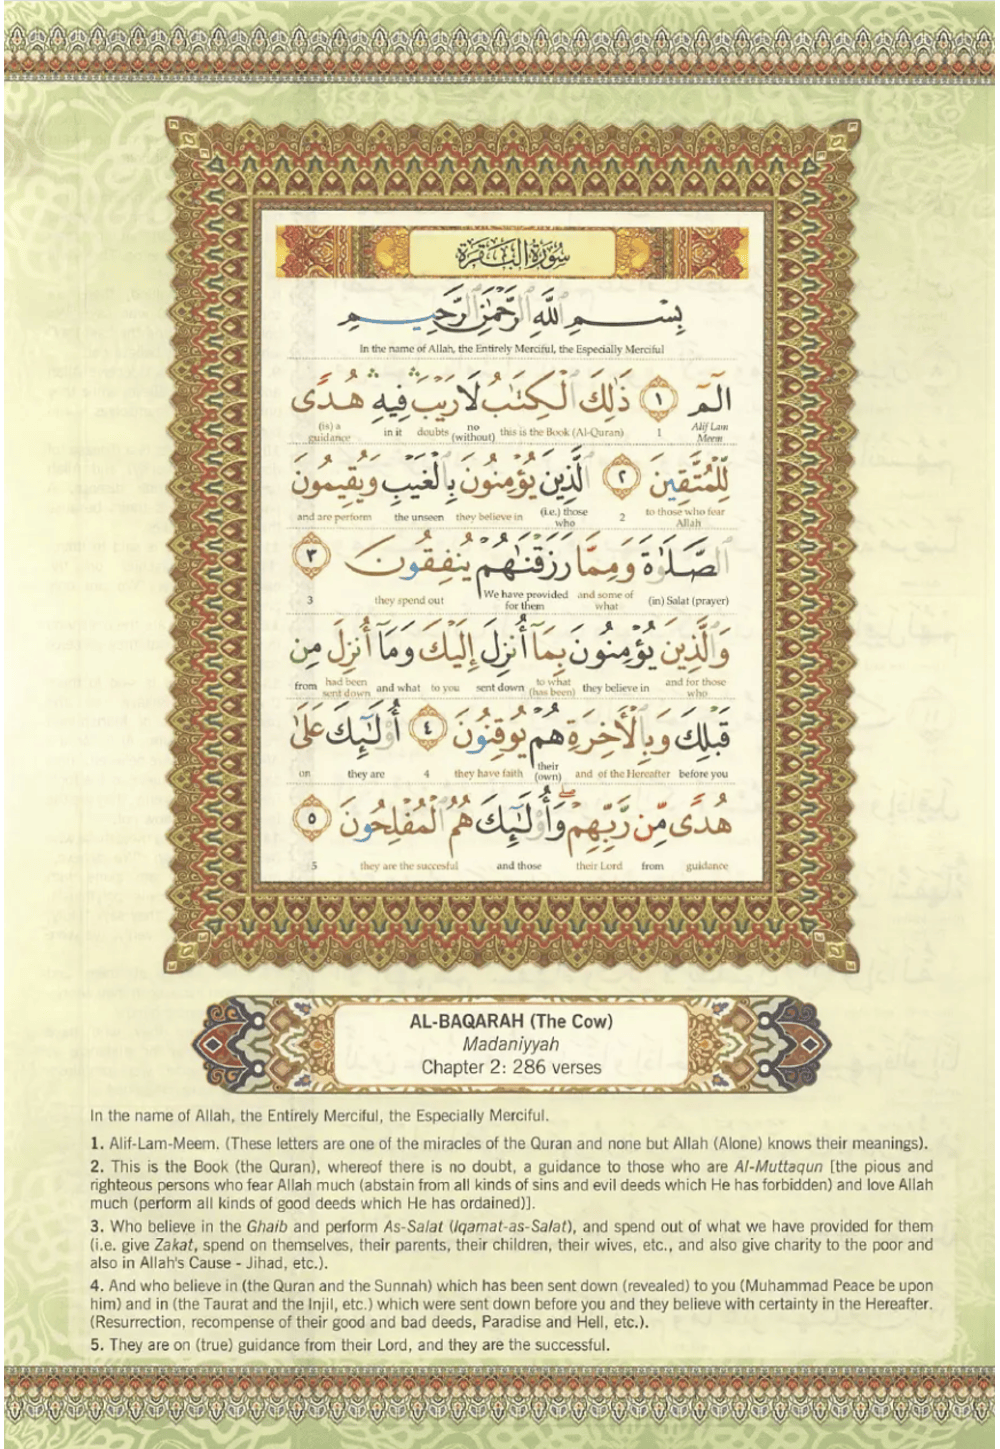 سُورَةُ الْبَقَرَة
بِسْمِ اللَّهِ الرَّحْمَٰنِ الرَّحِيمِ
In the name of Allah, the Entirely Merciful, the Especially Merciful
الٓمٓ ١ ذَٰلِكَ الْكِتَٰبُ لَا رَيْبَ ۛ فِيهِ ۛ هُدًى
Alif Lam Meem 1 this is the Book (Al-Quran) no (without) doubts in it (is) a guidance
لِّلْمُتَّقِينَ ٢ الَّذِينَ يُؤْمِنُونَ بِالْغَيْبِ وَيُقِيمُونَ
to those who fear Allah 2 (i.e.) those who they believe in the unseen and are perform
الصَّلَوٰةَ وَمِمَّا رَزَقْنَٰهُمْ يُنفِقُونَ ٣
(in) Salat (prayer) and some of what We have provided for them they spend out 3
وَالَّذِينَ يُؤْمِنُونَ بِمَآ أُنزِلَ إِلَيْكَ وَمَآ أُنزِلَ مِن
and for those who they believe in to what (has been) sent down to you and what had been sent down from
قَبْلِكَ وَبِالْأَخِرَةِ هُمْ يُوقِنُونَ ٤ أُو۟لَٰٓئِكَ عَلَىٰ
before you and of the Hereafter their (own) they have faith 4 they are on
هُدًى مِّن رَّبِّهِمْ ۖ وَأُو۟لَٰٓئِكَ هُمُ الْمُفْلِحُونَ ٥
guidance from their Lord and those they are the succesful 5
AL-BAQARAH (The Cow)
Madaniyyah
Chapter 2: 286 verses
In the name of Allah, the Entirely Merciful, the Especially Merciful.
1. Alif-Lam-Meem. (These letters are one of the miracles of the Quran and none but Allah (Alone) knows their meanings).
2. This is the Book (the Quran), whereof there is no doubt, a guidance to those who are Al-Muttaqun [the pious and
righteous persons who fear Allah much (abstain from all kinds of sins and evil deeds which He has forbidden) and love Allah
much (perform all kinds of good deeds which He has ordained)].
3. Who believe in the Ghaib and perform As-Salat (Iqamat-as-Salat), and spend out of what we have provided for them
(i.e. give Zakat, spend on themselves, their parents, their children, their wives, etc., and also give charity to the poor and
also in Allah's Cause - Jihad, etc.).
4. And who believe in (the Quran and the Sunnah) which has been sent down (revealed) to you (Muhammad Peace be upon
him) and in (the Taurat and the Injil, etc.) which were sent down before you and they believe with certainty in the Hereafter.
(Resurrection, recompense of their good and bad deeds, Paradise and Hell, etc.).
5. They are on (true) guidance from their Lord, and they are the successful.